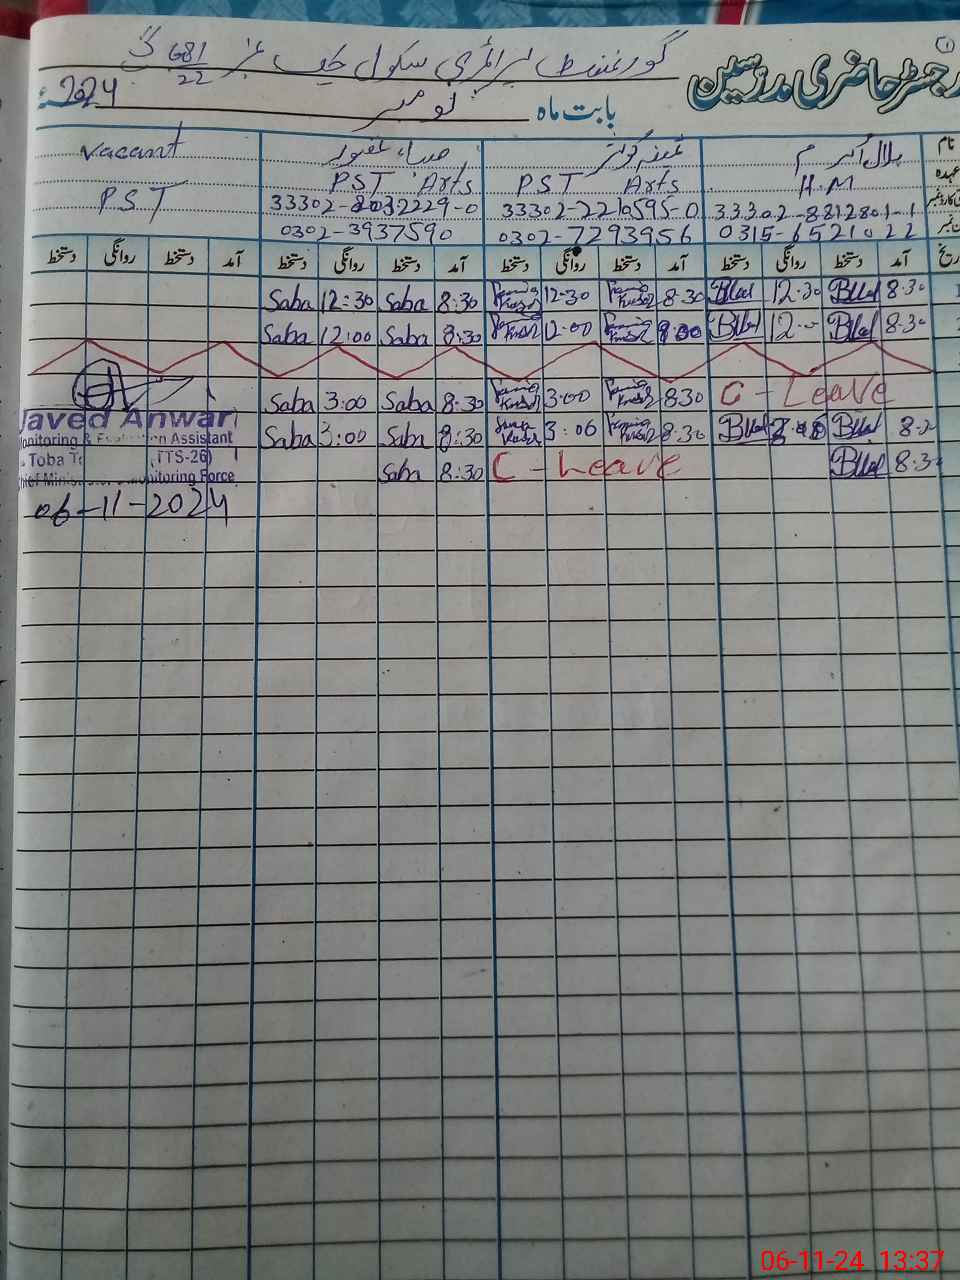 ①
رجسٹر حاضری مدرسین
گورنمنٹ پرائمری سکول چک نمبر 681/22 گ ب
بابت ماہ نومبر 2024ء
نام بلال اکرم ثمینہ کوثر صباء غفور Vacant
عہدہ H.M PST Arts PST Arts P.S.T
33302-8812801-1 33302-2210595-0 33302-8032229-0
0315-6521022 0302-7293956 0302-3937590
تاریخ آمد دستخط روانگی دستخط آمد دستخط روانگی دستخط آمد دستخط روانگی دستخط آمد دستخط روانگی دستخط
8.30 Bilal 12.30 Bilal 8.30 12.30 8:30 Saba 12:30 Saba
8.30 Bilal Bilal 12.00 8:30 Saba 12:00 Saba
C - Leave 8.30 3.00 8.30 Saba 3:00 Saba
Bilal Bilal 8.30 8:30 Saba 3:00 Saba
8.30 Bilal C - Leave 8:30 Saba
Javed Anwar
Monitoring & Evaluation Assistant
Toba (TTS-26)
Chief Minister Monitoring Force
06-11-2024
06-11-24 13:37